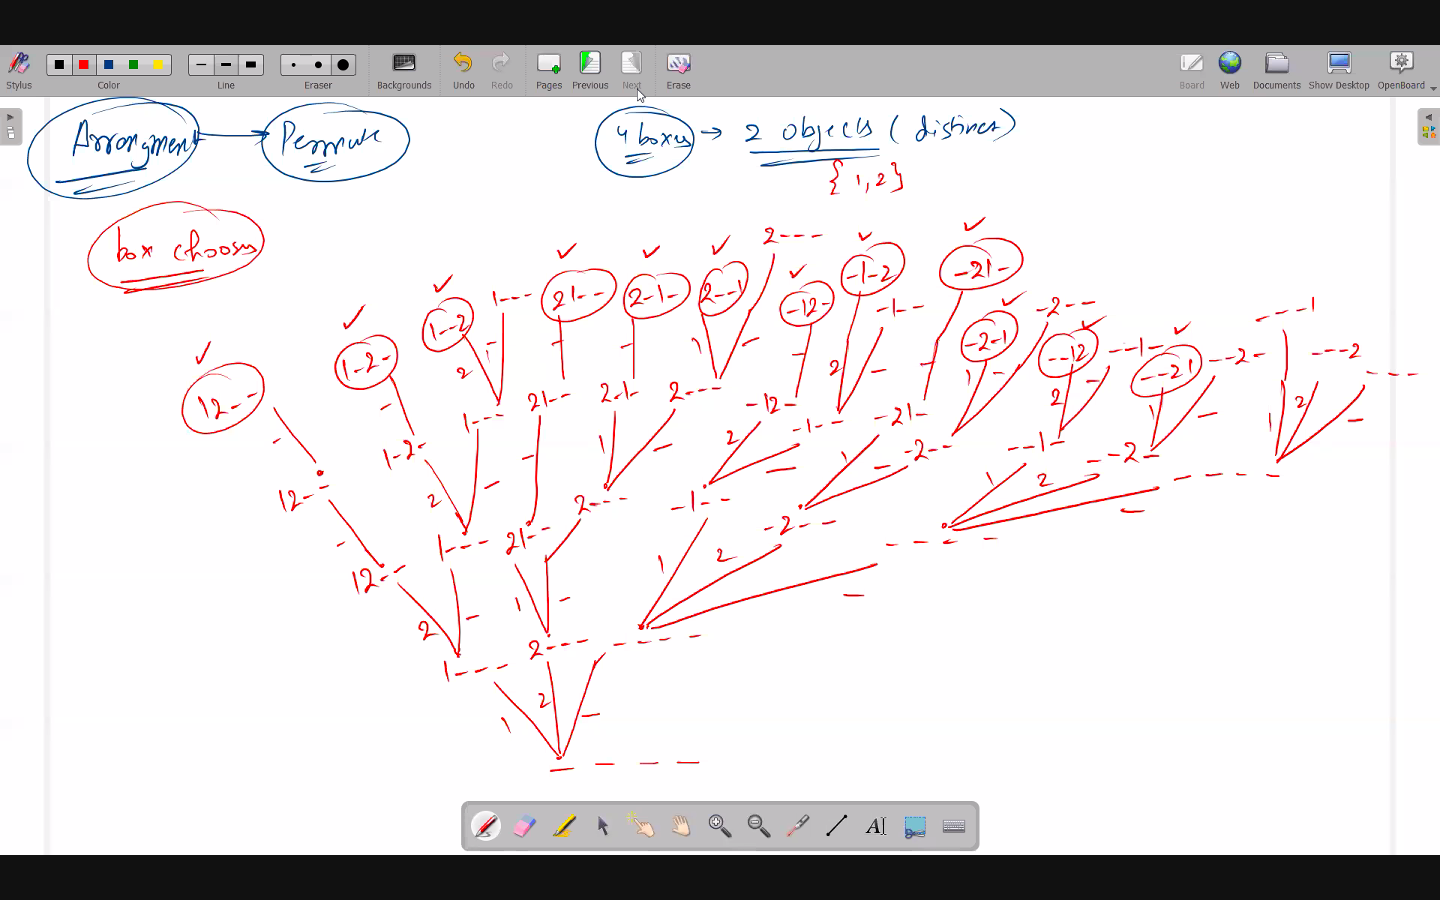 Stylus Color Line Eraser Backgrounds Undo Redo Pages Previous Next Erase Board Web Documents Show Desktop OpenBoard
Arrangment → Permute 4 boxes → 2 objects (distinct)
{1,2}
box chooses
2---
-1-2 -21-
1--- 21-- 2-1- 2--1 -12- -1-- -2-- ---1
1--2 -2-1 --12 --1- --21 --2- ---2 ----
1-2-
12-- 1--- 21-- 2-1- 2--- -12- -1-- -21-
1-2- -2-- --1- --2- ----
12-- 2--- -1-- -2--
1--- 21-- ----
12--
1--- 2--- ----
1 2 -
- - - -